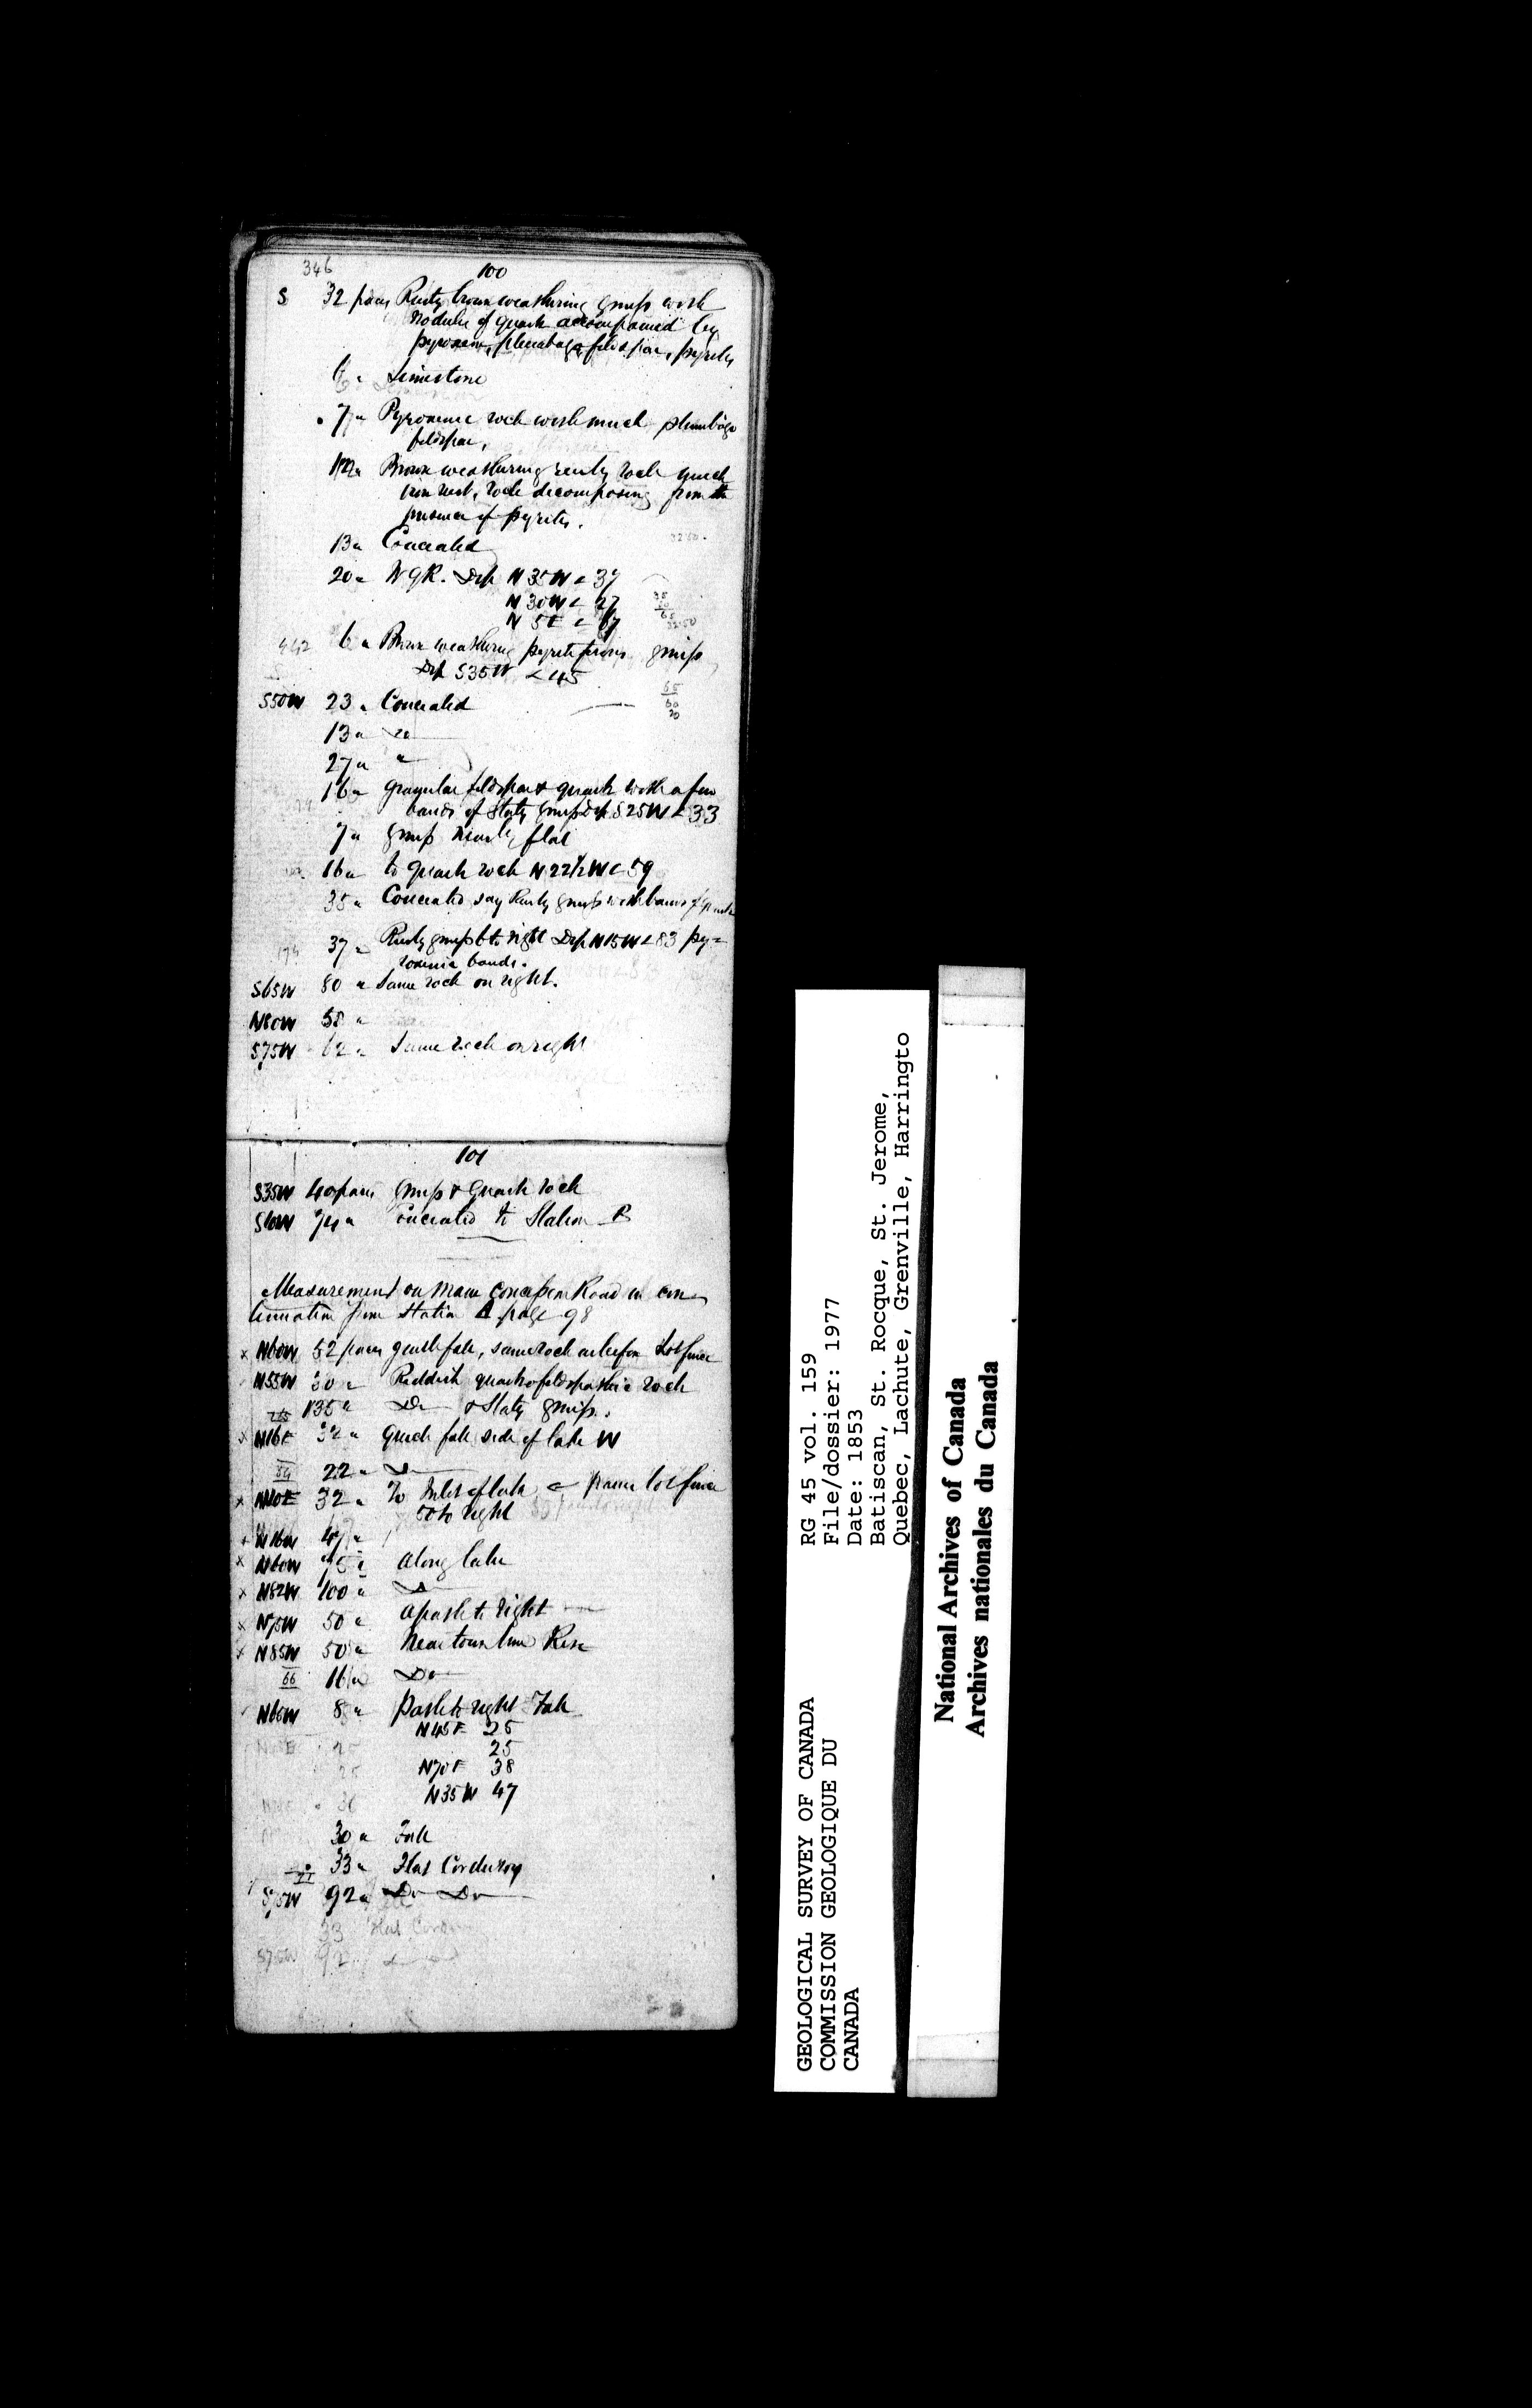 346
100
S 32 paces Rusty brown weathering gneiss with
nodules of quartz accompanied by
pyroxene, plumbago, feldspar, pyrites
6 " Limestone
7 " Pyroxenic rock with much plumbago
feldspar,
12 " Brown weathering rusty rock much
iron rust, rock decomposing from the
presence of pyrites.
13 " Concealed
20 " W G R. Dip N 35 W < 37
N 30 W < 27
N 5 E < 67
442 6 " Brown weathering pyritiferous gneiss
Dip S35W < 45
S50W 23 " Concealed
13 " Do
27 " "
16 " Granular feldspar & quartz with a few
bands of Slaty gneiss dip S25W < 33
7 " gneiss nearly flat
16 " to quartz rock N 22½ W < 59
35 " Concealed say Rusty gneiss with bands of quartz
37 " Rusty gneiss 6 to right Dip N15W < 83 py=
roxenic bands.
S65W 80 " Same rock on right.
N80W 58 "
S75W 62 " Same rock on right
101
S35W 40 paces gneiss & Quartz rock
S60W 74 " Concealed to Station B
Measurement on main concession Road in con
tinuation from Station A page 98
x N60W 52 paces gentle fall, same rock as before Lot fence
N55W 30 " Reddish quartzo feldspathic rock
135 " Do & Slaty gneiss.
x N16E 32 " Quick fall side of lake W
54 22 " Do
x N40E 32 " To Inlet of lake paces lot fence
50 to right
x N16W 47 "
x N60W 75 " Along lake
x N82W 100 " Do
x N75W 50 " A path to right
x N85W 50 " Near town line Rise
66 16 " Do
N66W 8 " Path to right Fall
N45E 25
25
N70E 38
N35W 47
30 " Fall
33 " Flat Corduroy
S75W 92 " Do Do
33 Flat Cordu
S75W 92
RG 45 vol. 159
File/dossier: 1977
Date: 1853
Batiscan, St. Rocque, St. Jerome,
Quebec, Lachute, Grenville, Harringto
GEOLOGICAL SURVEY OF CANADA
COMMISSION GEOLOGIQUE DU
CANADA
National Archives of Canada
Archives nationales du Canada